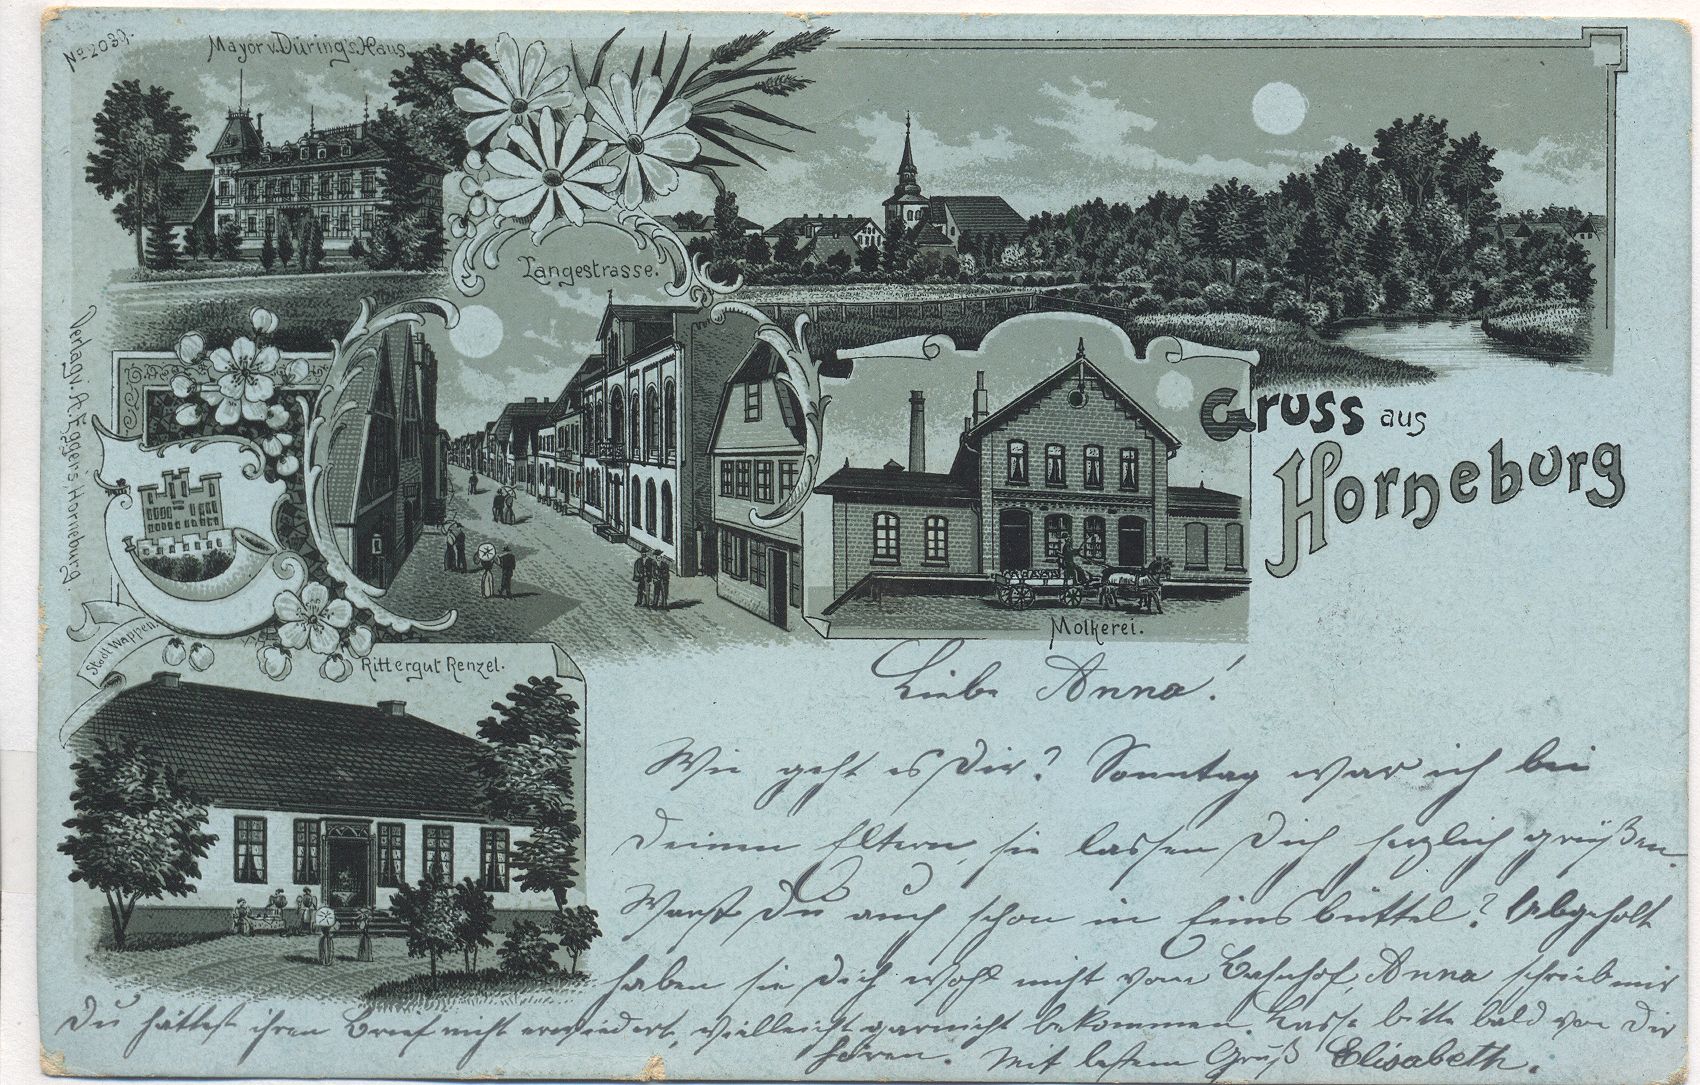 No 2039.
Mayor v. Düring's Haus.
Langestrasse.
Gruss aus
Horneburg
Verlag v. A. Eggers Horneburg.
Molkerei.
Stadt Wappen.
Rittergut Renzel.
Liebe Anna!
Wie geht es Dir? Sonntag war ich bei
Deinen Eltern, sie lassen Dich herzlich grüßen.
Warst Du auch schon in Eimsbüttel? Abgeholt
haben sie Dich wohl nicht vom Bahnhof, Anna schrieb mir
Du hättest ihren Brief nicht erwiedert, vielleicht garnicht bekommen. Lasse bitte bald von Dir
hören. Mit bestem Gruß Elisabeth.